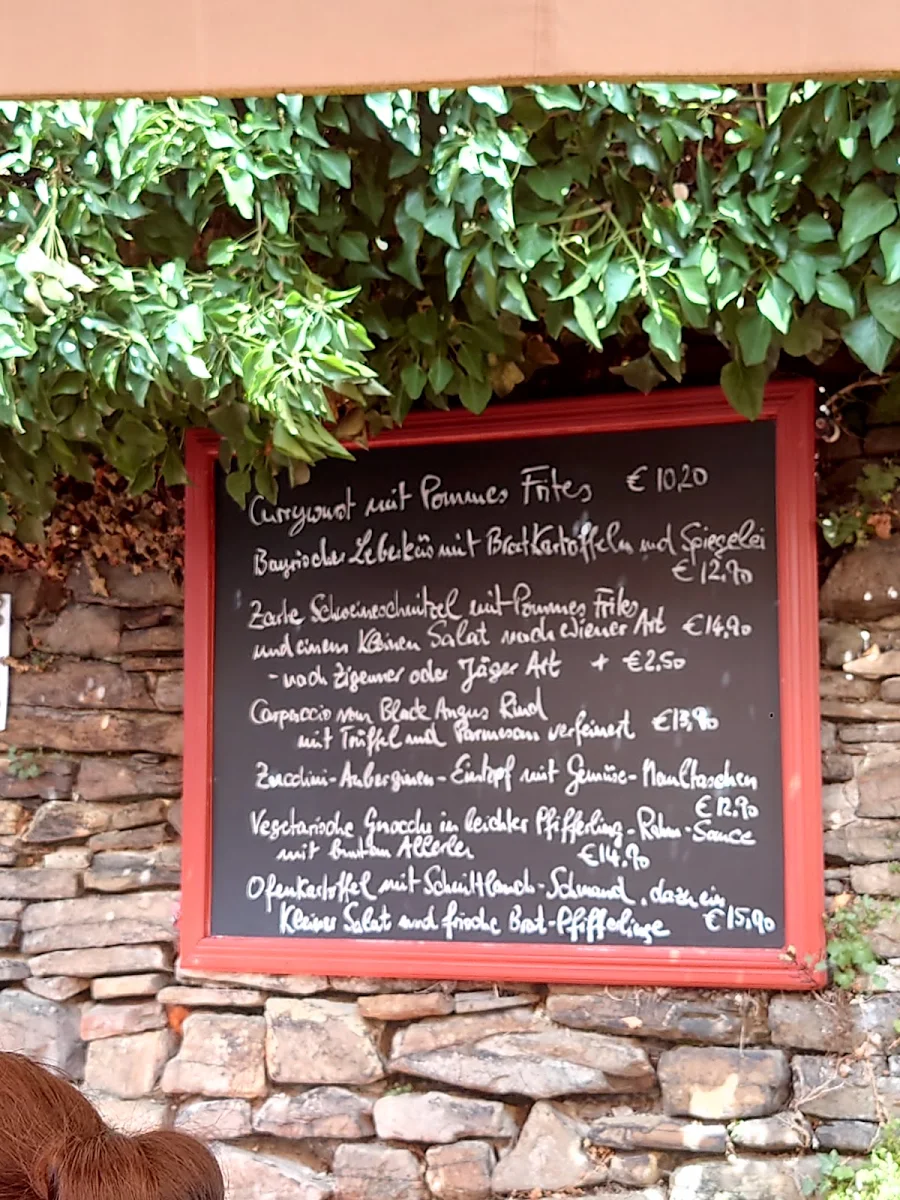 Currywurst mit Pommes Frites € 10,20
Bayrischer Leberkäs mit Bratkartoffeln und Spiegelei
€ 12,90
Zarte Schweineschnitzel mit Pommes Frites
und einem kleinen Salat nach Wiener Art €14,90
- nach Zigeuner oder Jäger Art + €2,50
Carpaccio vom Black Angus Rind
mit Trüffel und Parmesan verfeinert €13,90
Zucchini-Auberginen-Eintopf mit Gemüse-Maultaschen
€12,90
Vegetarische Gnocchi in leichter Pfifferling-Rahm-Sauce
mit buntem Allerlei €14,90
Ofenkartoffel mit Schnittlauch-Schmand, dazu ein
kleiner Salat und frische Brat-Pfifferlinge €15,90